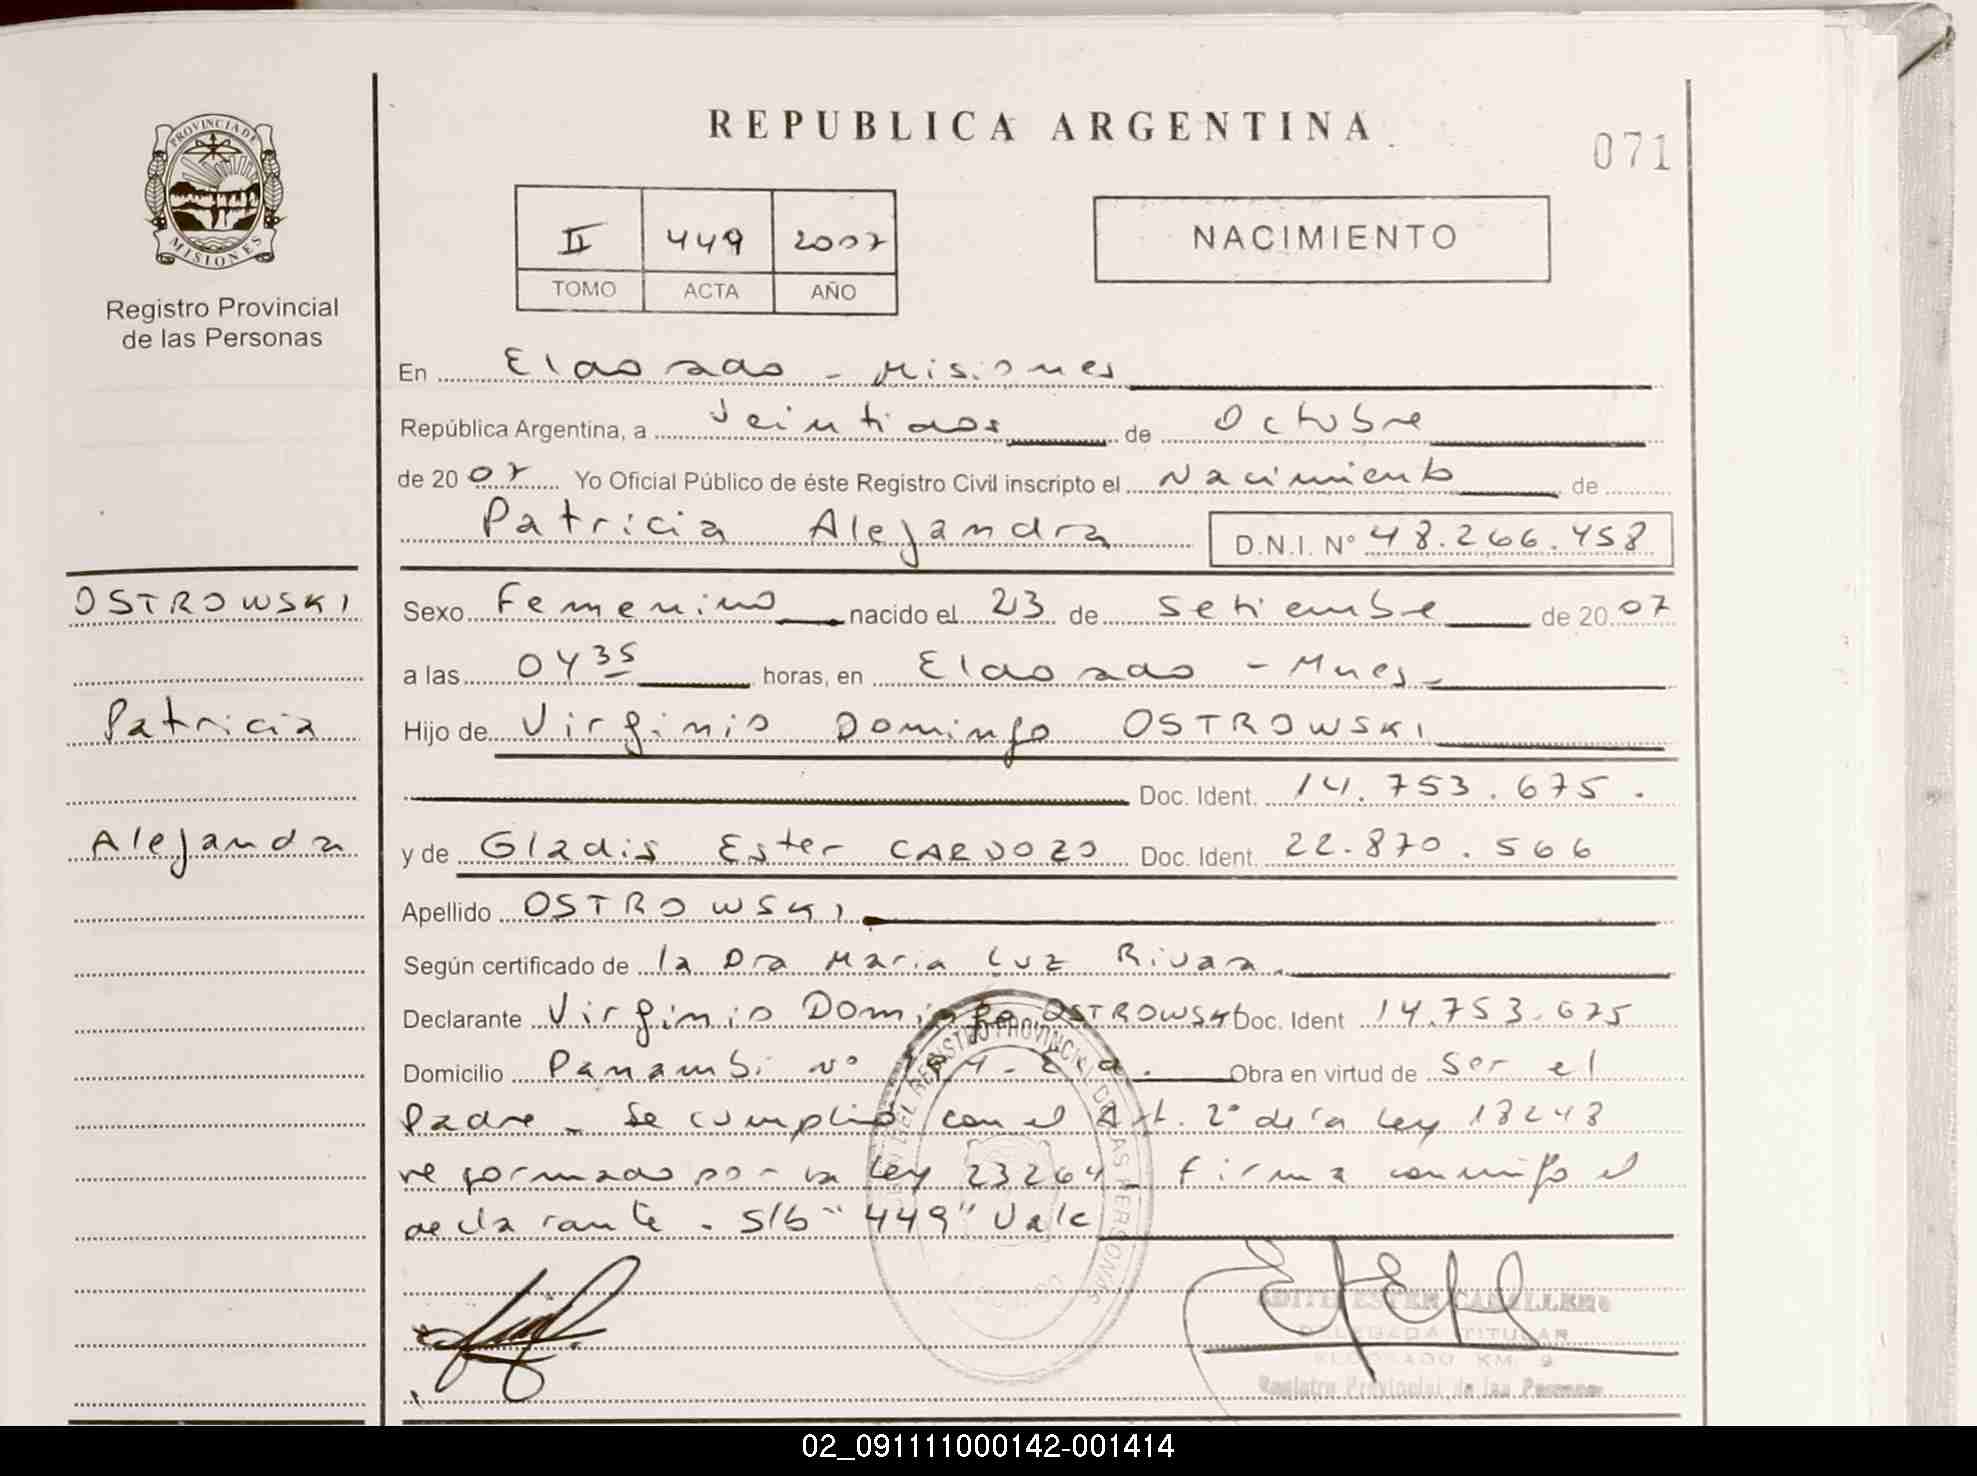 PROVINCIA DE
MISIONES
Registro Provincial
de las Personas
REPUBLICA ARGENTINA
071
II 449 2007
TOMO ACTA AÑO
NACIMIENTO
En Eldorado - Misiones
República Argentina, a Veintidos de Octubre
de 2007 Yo Oficial Público de éste Registro Civil inscripto el Nacimiento de
Patricia Alejandra D.N.I. Nº 48.266.458
OSTROWSKI
Patricia
Alejandra
Sexo Femenino nacido el 23 de Setiembre de 2007
a las 04 35 horas, en Eldorado - Mnes.
Hijo de Virginio Domingo OSTROWSKI
Doc. Ident. 14.753.675.
y de Gladis Ester CARDOZO Doc. Ident. 22.870.566
Apellido OSTROWSKI
Según certificado de la Dra Maria Luz Rivara.
Declarante Virginio Domingo OSTROWSKI Doc. Ident 14.753.675
Domicilio Panambi Nº Obra en virtud de Ser el
Padre - Se cumplió con el Art. 2º de la Ley 18248
reformado por la Ley 23264 - Firma conmigo el
declarante. S/b "449" Vale
DEL REGISTRO PROVINCIAL DE LAS PERSONAS
EDITH ESTER CABALLERO
DELEGADA TITULAR
ELDORADO KM. 9
Registro Provincial de las Personas
02_091111000142-001414